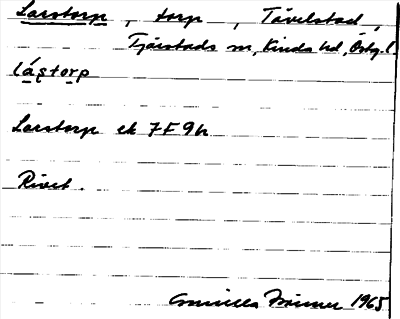 Larstorp, torp, Tävelstad,
Tjärstads sn, Kinda hd, Östg. l.
låstorp
Larstorp ek 7F9h
Rivet.
1965